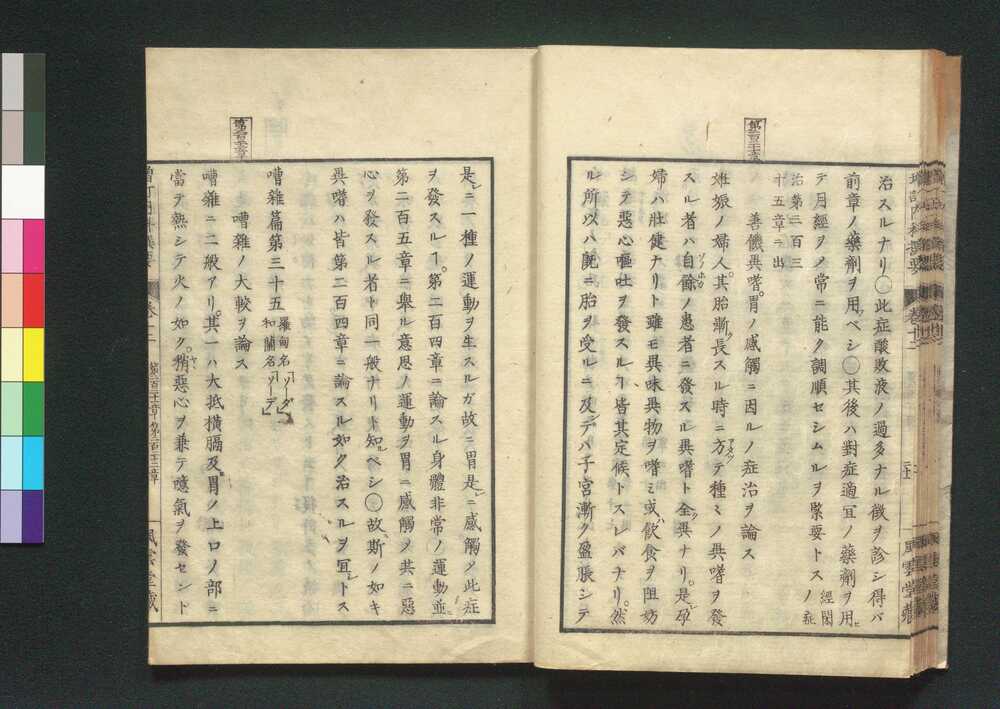 治スルナリ〇此症酸敗液ノ過多ナル徴ヲ診シ得バ
前章ノ藥劑ヲ用ベシ〇其後ハ對症適宜ノ藥劑ヲ用ヒ
テ月經ヲノ常ニ能ク調順セシムルヲ緊要トス 經閉ノ症
治第二百三
十五章ニ出
善饑異嗜胃ノ感觸ニ因ルノ症治ヲ論ス
第二百三十一章
妊娠ノ婦人其胎漸ク長スル時ニ方テ種〻ノ異嗜ヲ發
スル者ハ自餘ノ患者ニ發スル異嗜ト全ク異ナリ是レ孕
婦ハ壯健ナリト雖モ異味異物ヲ嗜ミ或ハ飲食ヲ阻妨
シテ惡心嘔吐ヲ發スルヿ皆其定候トスレバナリ然
ル所以ハ既ニ胎ヲ受ルニ及デハ子宮漸ク盈脹シテ
是レニ一種ノ運動ヲ生スルガ故ニ胃是レニ感觸ノ此症
ヲ發スルヿ第二百四章ニ論スル身體非常ノ運動並ニ
第二百五章ニ舉ル意思ノ運動ヲ胃ニ感觸ノ共ニ惡
心ヲ發スル者ト同一般ナリト知ルベシ〇故ニ斯ノ如キ
異嗜ハ皆第二百四章ニ論スル如ク治スルヲ冝シトス
嘈雜篇第三十五 羅甸名「ソーダ」
和蘭名「ソーデ」
嘈雜ノ大較ヲ論ス
嘈雜ニ二般アリ其一ハ大抵橫膈及ビ胃ノ上口ノ部ニ
當テ熱シテ火ノ如ク稍惡心ヲ兼テ噫氣ヲ發セント
風雲堂藏